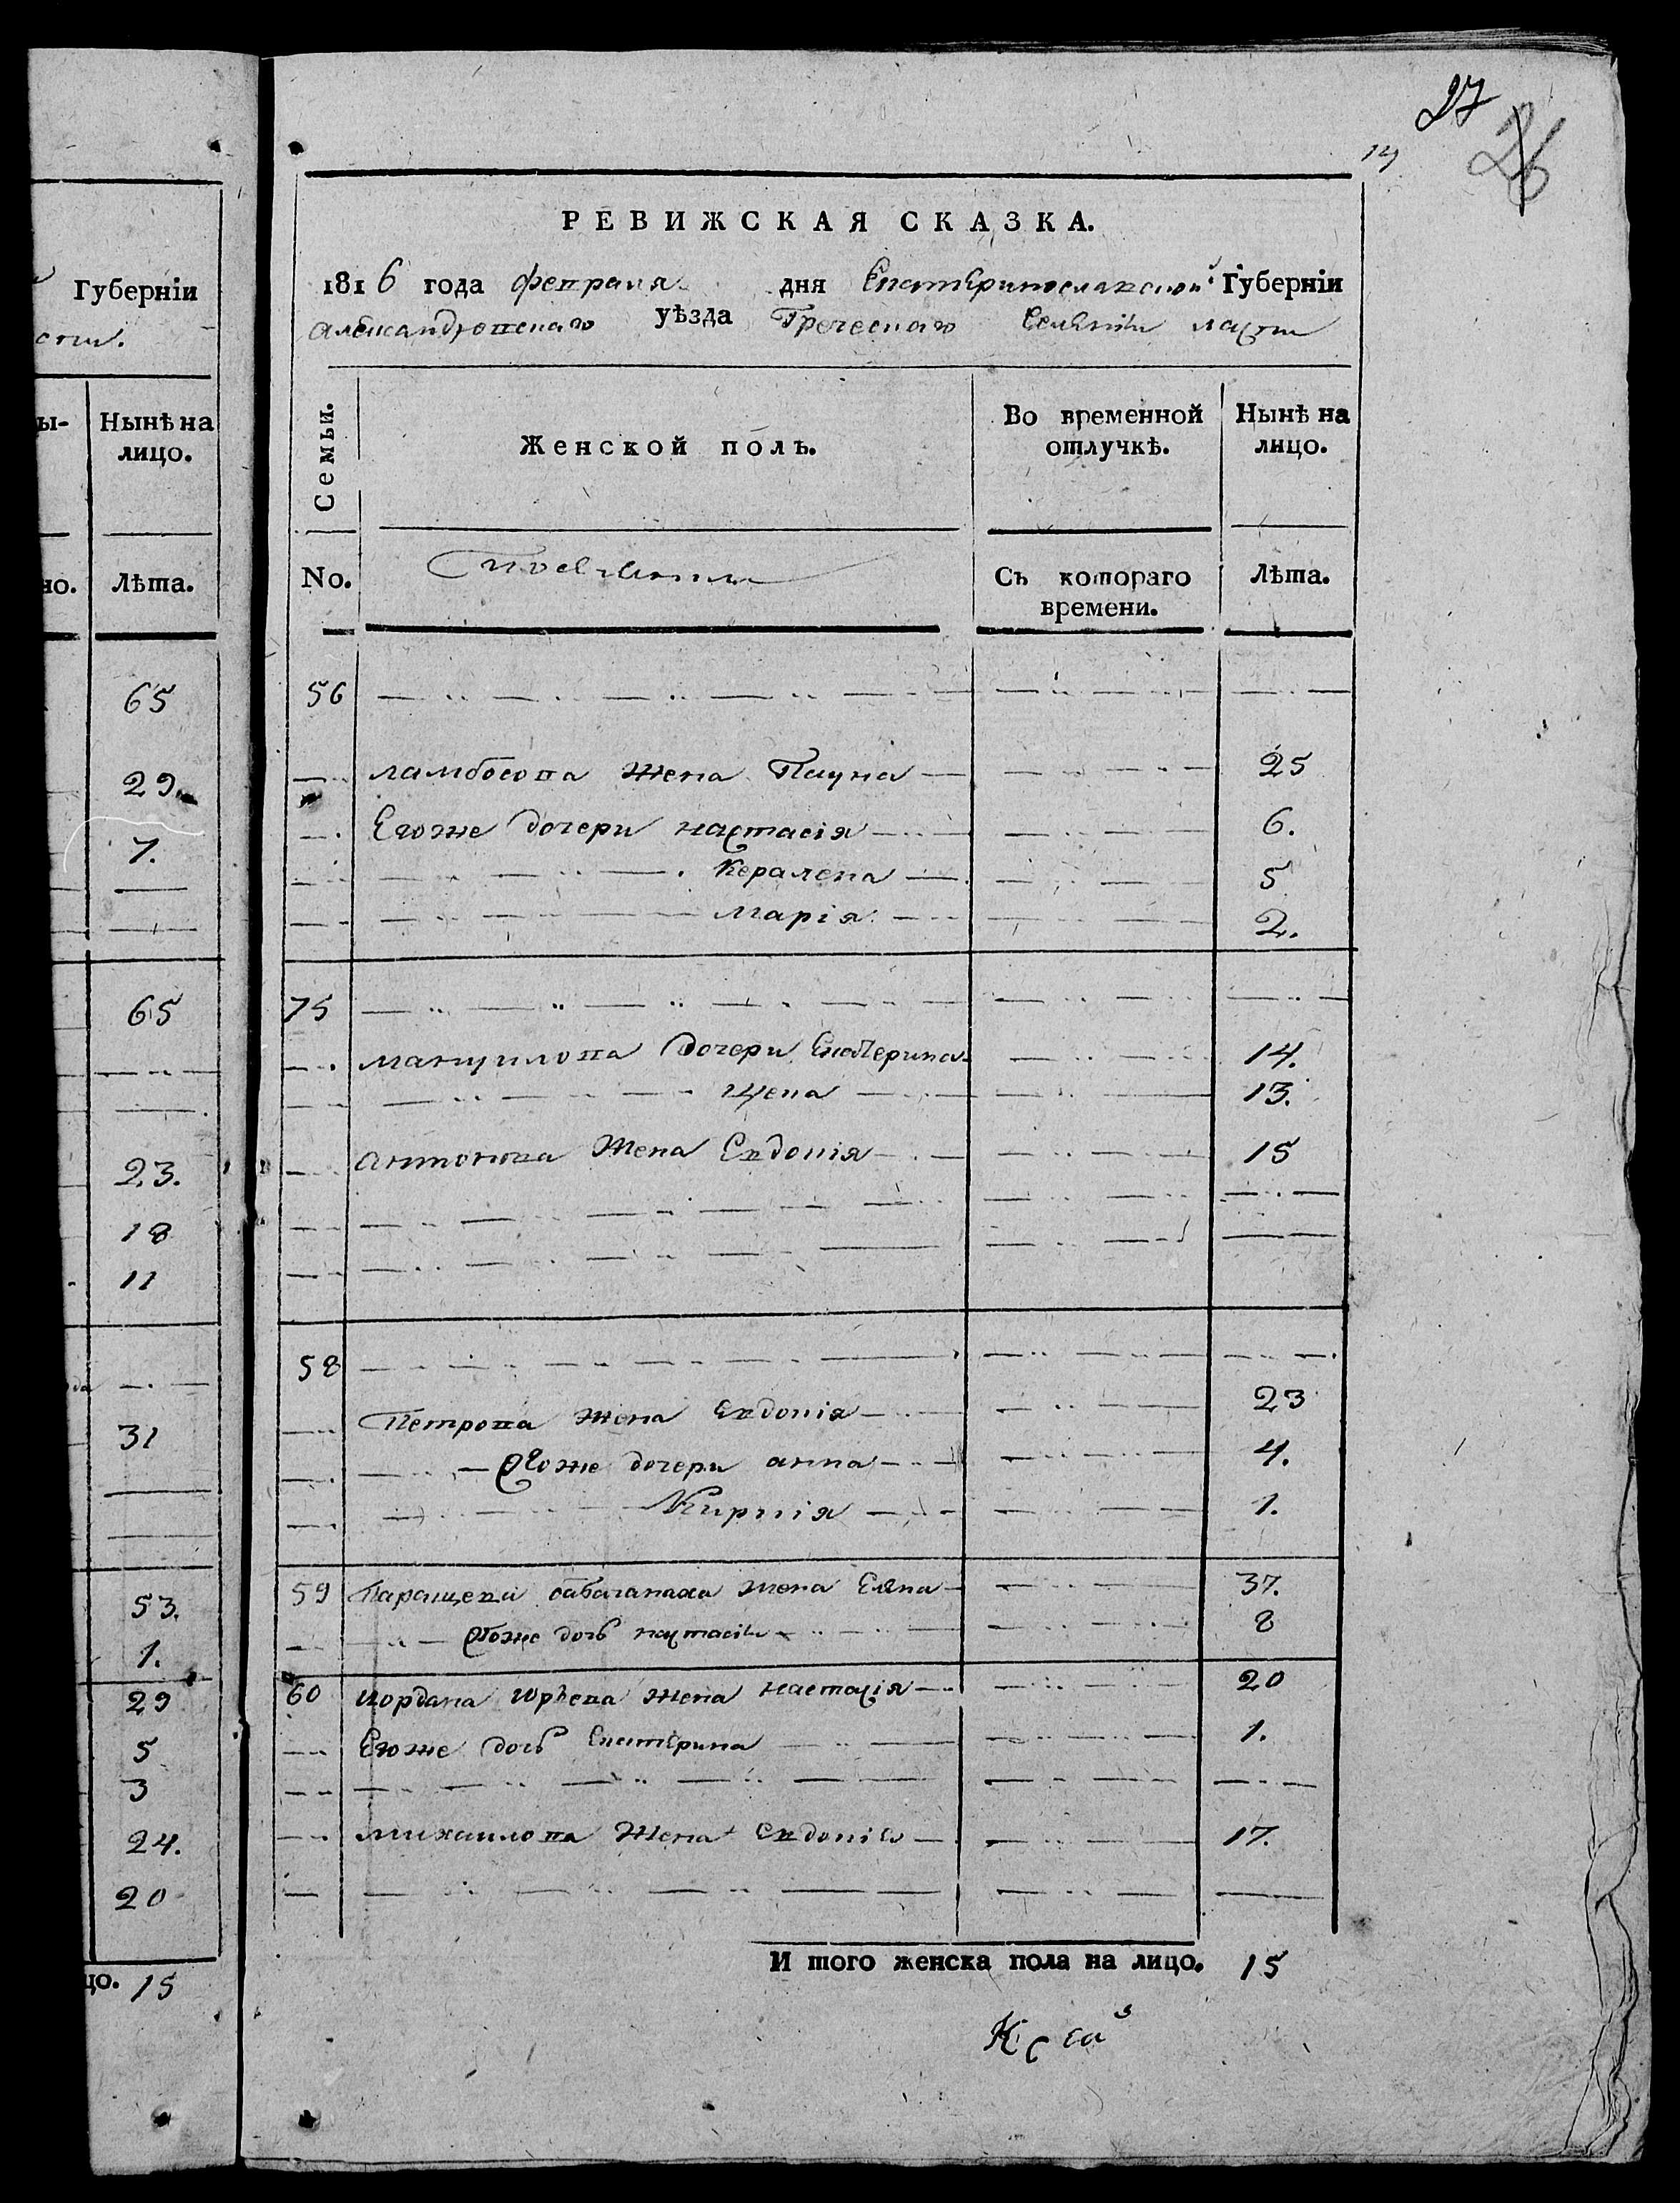 27
26
14
Губерніи
РЕВИЖСКАЯ СКАЗКА.
1816 года февраля дня Екатеринославской Губерніи
Александровскаго уѣзда Греческаго Селенія
Нынѣ на
лицо.
Лѣта.
Семьи.
No.
Женской полъ.
Во временной
отлучкѣ.
Съ котораго
времени.
Нынѣ на
лицо.
Лѣта.
65
29
7.
65
23.
18
11
31
53.
1.
29
5
3
24.
20
цо. 15
56
Ламбосова жена Пауна 25
Егоже дочери настасія 6.
Кералена 5
Марія 2.
75
мануилова дочери Екатерина 14.
Цена 13.
антонова жена Евдокія 15
58
Петрова жена Евдокія 23
Егоже дочери анна 4.
Кирикія 1.
59 Паращева жена Елена 37.
Егоже дочь настасія 8
60 иордана юрьева жена настасія 20
Егоже дочь Екатерина 1.
михаилова жена Евдокія 17.
И того женска пола на лицо. 15